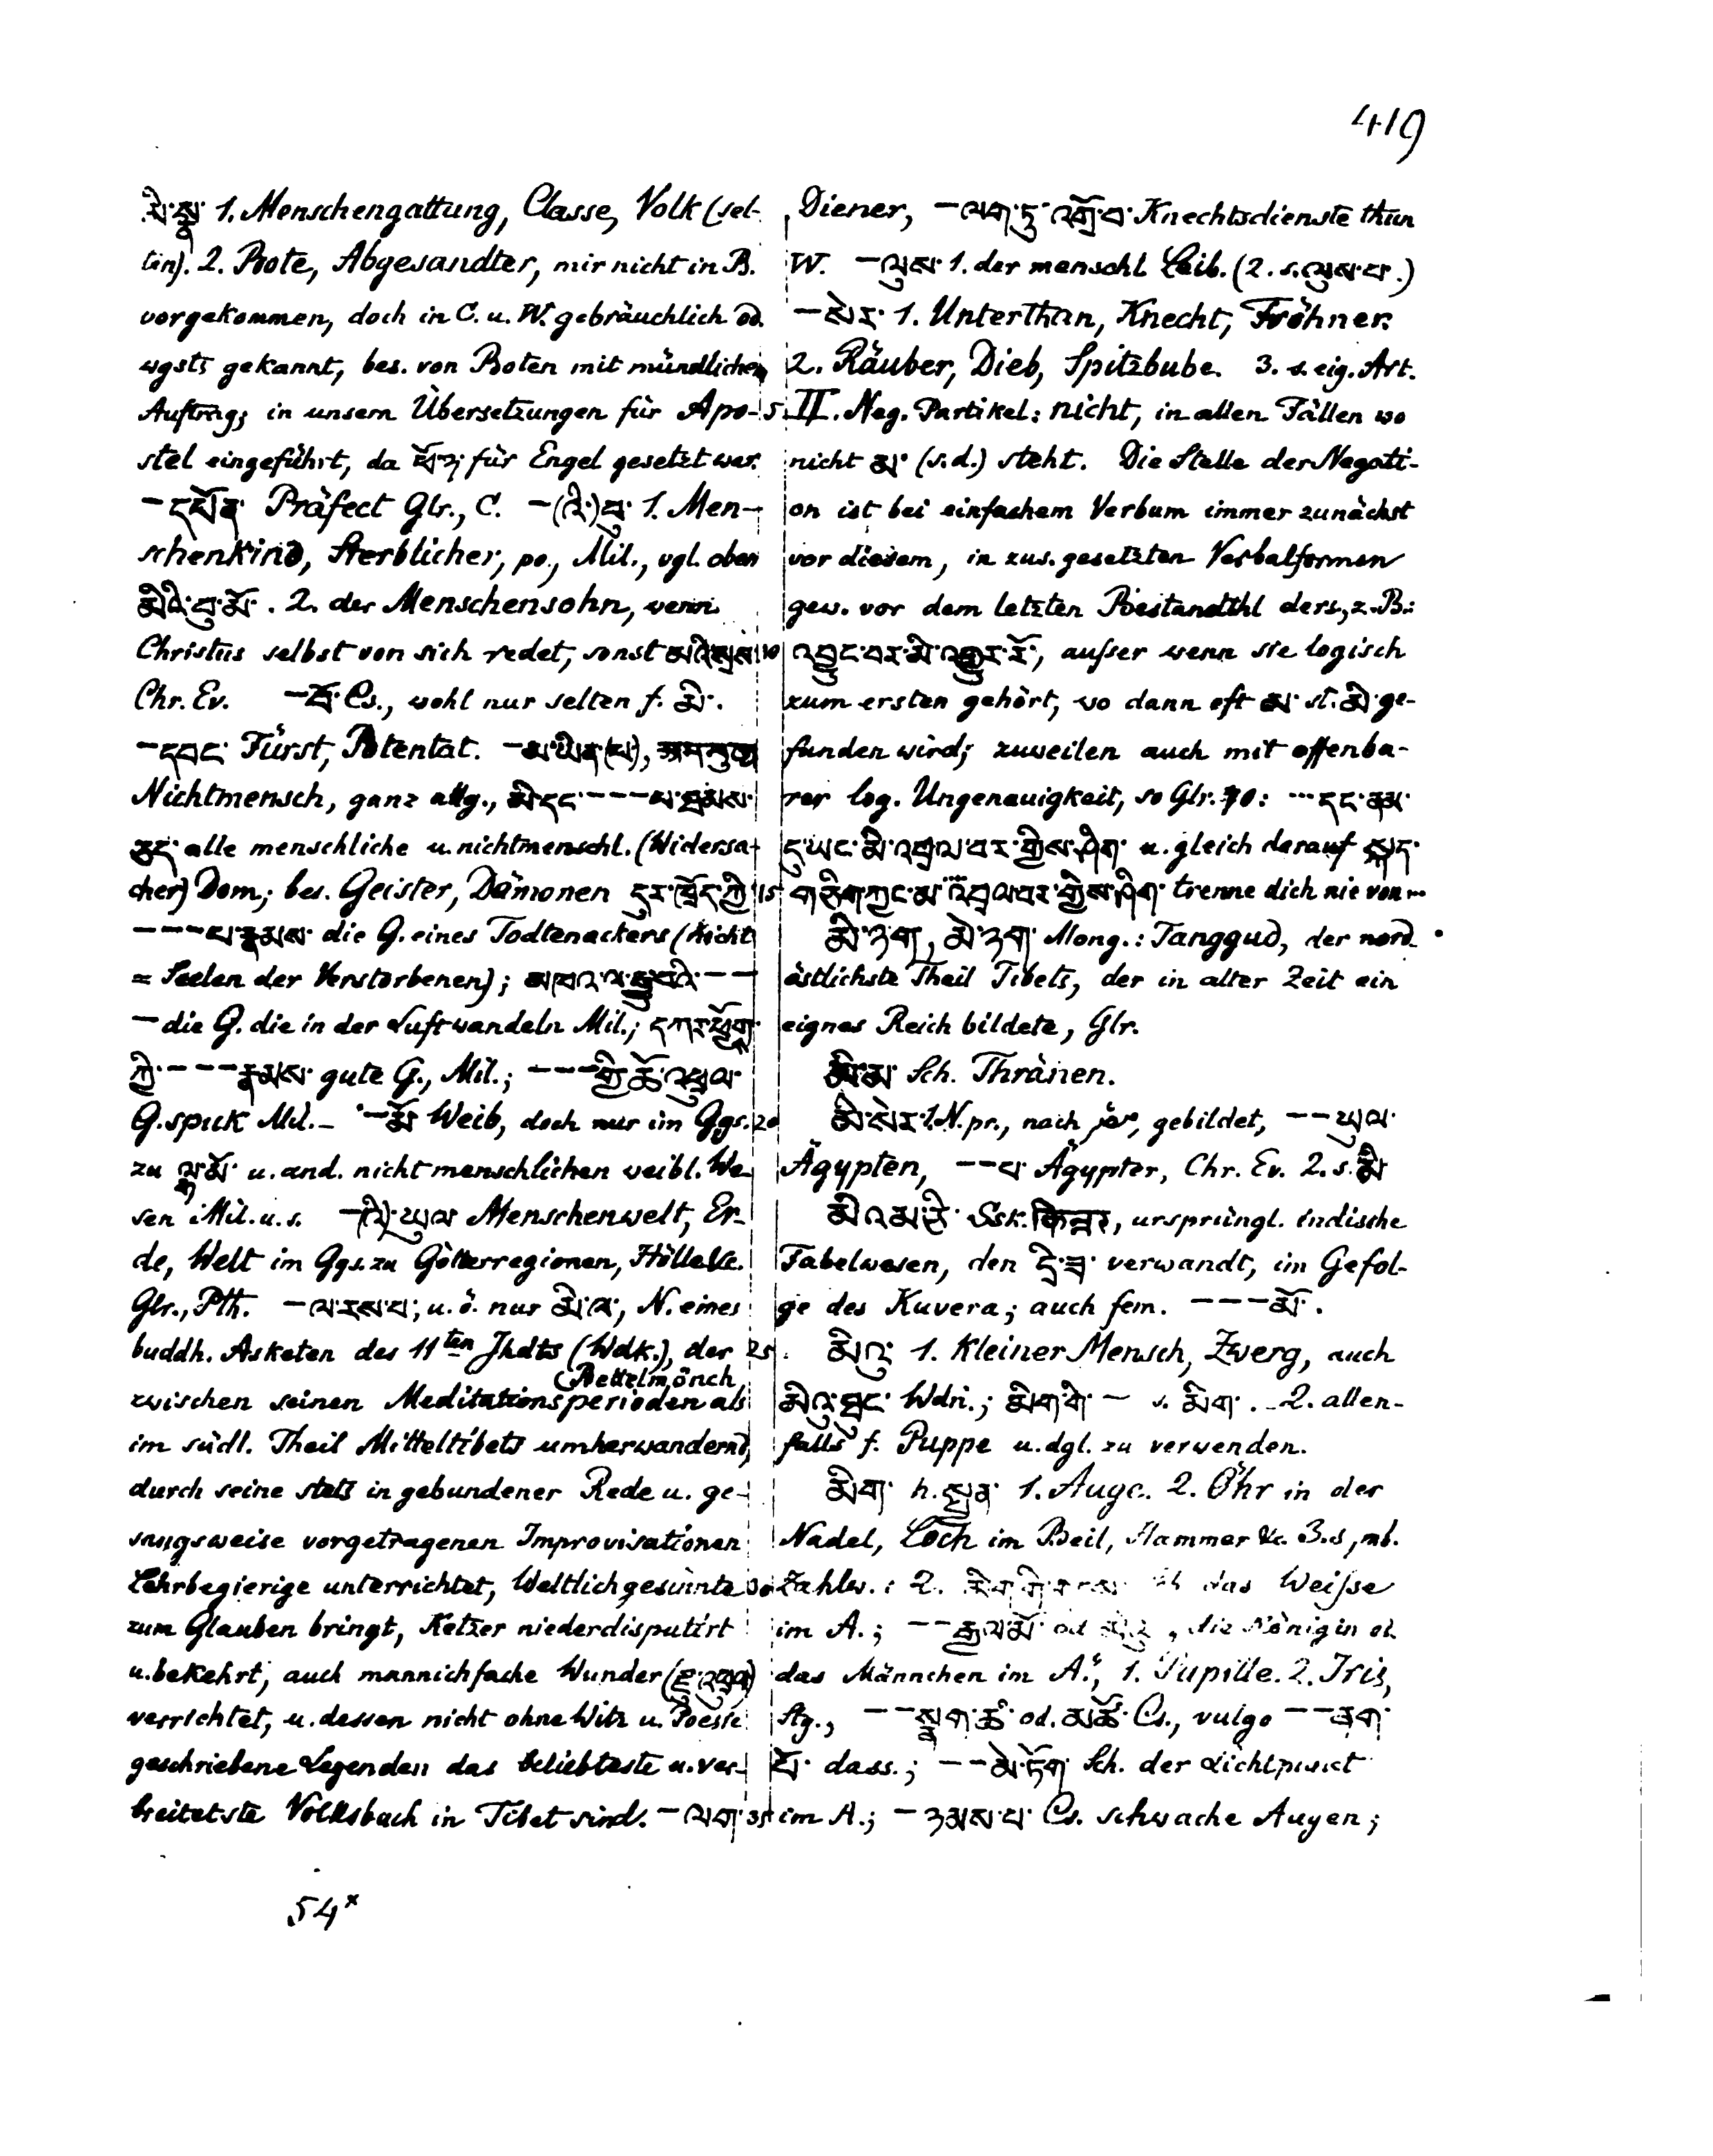 419
མི་སྣ་ 1. Menschengattung, Classe, Volk (sel-
ten). 2. Bote, Abgesandter, mir nicht in B.
vorgekommen, doch in C. u. W. gebräuchlich od.
wgsts gekannt, bes. von Boten mit mündlichem
Auftrag; in unsern Übersetzungen für Apo-
stel eingeführt, da ཕོ་ཉ་ für Engel gesetzt war.
– དཔོན་ Präfect Glr., C. – (འི་)བུ་ 1. Men-
schenkind, Sterblicher, po., Mil., vgl. oben
མིའི་བུ་མོ་. 2. der Menschensohn, wenn
Christus selbst von sich redet, sonst
Chr. Ev. – པོ་ Cs., wohl nur selten f. མི་.
– དབང་ Fürst, Potentat. – མ་ཡིན་(པ་),
Nichtmensch, ganz allg., མི་དང་ – – – པ་ཐམས་
ཅད་ alle menschliche u. nichtmenschl. (Widersa-
cher) Dom; bes. Geister, Dämonen དུར་ཁྲོད་ཀྱི་
– – – པ་རྣམས་ die G. eines Todtenackers (nicht
= Seelen der Verstorbenen); མཁའ་ལ་རྒྱུ་བའི་ – –
– die G. die in der Luft wandeln Mil.; དཀར་ཕྱོགས་
ཀྱི་ – – – རྣམས་ gute G., Mil.; – – – གྱི་ཆོ་འཕྲུལ་
G.spuk Mil. – – མོ་ Weib, doch nur im Ggs.
zu ལྷ་མོ་ u. and. nicht menschlichen weibl. We-
sen Mil. u. s. – (འི་)ཡུལ་ Menschenwelt, Er-
de, Welt im Ggs. zu Götterregionen, Hölle &c.
Glr., Pth. – ལ་རས་པ་, u. ö. nur མི་ལ་, N. eines
buddh. Asketen des 11ten Jhdts (Wdk.), der
Bettelmönch
zwischen seinen Meditationsperioden als
im südl. Theil Mitteltibets umherwandernd,
durch seine stets in gebundener Rede u. ge-
sangsweise vorgetragenen Improvisationen
Lehrbegierige unterrichtet, Weltlichgesinnte
zum Glauben bringt, Ketzer niederdisputirt
u. bekehrt, auch mannichfache Wunder (རྫུ་འཕྲུལ་)
verrichtet, u. dessen nicht ohne Witz u. Poesie
geschriebene Legenden das beliebteste u. ver-
breitetste Volksbuch in Tibet sind. – ལག་
54ˣ
Diener, – ལག་ཏུ་འགྲོ་བ་ Knechtsdienste thun
W. – ལུས་ 1. der menschl Leib. (2. s. ལུས་པ་.)
– སེར་ 1. Unterthan, Knecht, Fröhner.
2. Räuber, Dieb, Spitzbube. 3. s. eig. Art.
5 II. Neg. Partikel: nicht, in allen Fällen wo
nicht མ་ (s.d.) steht. Die Stelle der Negati-
on ist bei einfachem Verbum immer zunächst
vor diesem, in zus. gesetzten Verbalformen
gew. vor dem letzten Bestandthl ders., z. B.:
10 འབྱུང་བར་མི་འགྱུར་རོ་, außer wenn sie logisch
zum ersten gehört, wo dann oft མ་ st. མི་ ge-
funden wird; zuweilen auch mit offenba-
rer log. Ungenauigkeit, so Glr. 70: ··· དང་ནམ་
དུ་ཡང་མི་འབྲལ་བར་གྱིས་ཤིག་ u. gleich darauf སྐད་
15 གཅིག་ཀྱང་མ་འབྲལ་བར་གྱིས་ཤིག་ trenne dich nie von ···
མི་ཉག་, མེ་ཉག་ Mong.: Tanggud, der nord-
östlichste Theil Tibets, der in alter Zeit ein
eignes Reich bildete, Glr.
མི་མ་ Sch. Thränen.
20 མི་སེར་ 1. N. pr., nach , gebildet, – – ཡུལ་
Ägypten, – – པ་ Ägypter, Chr. Ev. 2. s. མི་
མིའམ་ཅི་ Ssk. किन्नर, ursprüngl. indische
Fabelwesen, den དྲི་ཟ་ verwandt, im Gefol-
ge des Kuvera; auch fem. – – – མོ་.
25 མིའུ་ 1. Kleiner Mensch, Zwerg, auch
མིའུ་ཐུང་ Wdn.; མིག་གི་ – s. མིག་. – 2. allen-
falls f. Puppe u. dgl. zu verwenden.
མིག་ h. སྤྱན་ 1. Auge. 2. Öhr in der
Nadel, Loch im Beil, Hammer &c. 3. s, mb.
30 Zahlw.: 2. das Weiße
im A.; – – རྒྱལ་མོ་ od , die Königin od.
das Männchen im A.", 1. Pupille. 2. Iris,
Stg., – – སྣག་ཆོ་ od. མཚོ་ Cs., vulgo – – ནག་
པོ་ dass.; – – མེ་ཏོག་ Sch. der Lichtpunct
35 im A.; – ཉམས་པ་ Cs. schwache Augen;